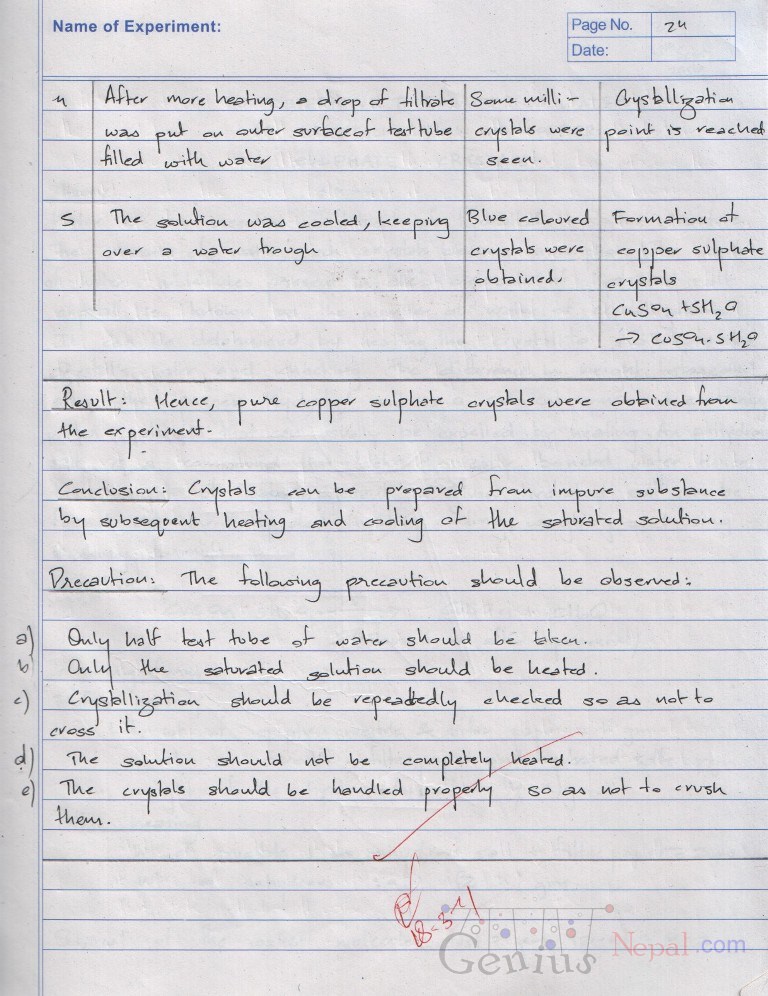 Name of Experiment:
Page No. 24
Date:
4 After more heating, a drop of filtrate Some milli- Crystallization
was put on outer surface of test tube crystals were point is reached
filled with water seen.
5 The solution was cooled, keeping Blue coloured Formation of
over a water trough crystals were copper sulphate
obtained. crystals
CuSO4 + 5H2O
→ CuSO4.5H2O
Result: Hence, pure copper sulphate crystals were obtained from
the experiment.
Conclusion: Crystals can be prepared from impure substance
by subsequent heating and cooling of the saturated solution.
Precaution: The following precaution should be observed:
a) Only half test tube of water should be taken.
b) Only the saturated solution should be heated.
c) Crystallization should be repeatedly checked so as not to
cross it.
d) The solution should not be completely heated.
e) The crystals should be handled properly so as not to crush
them.
Genius Nepal.com